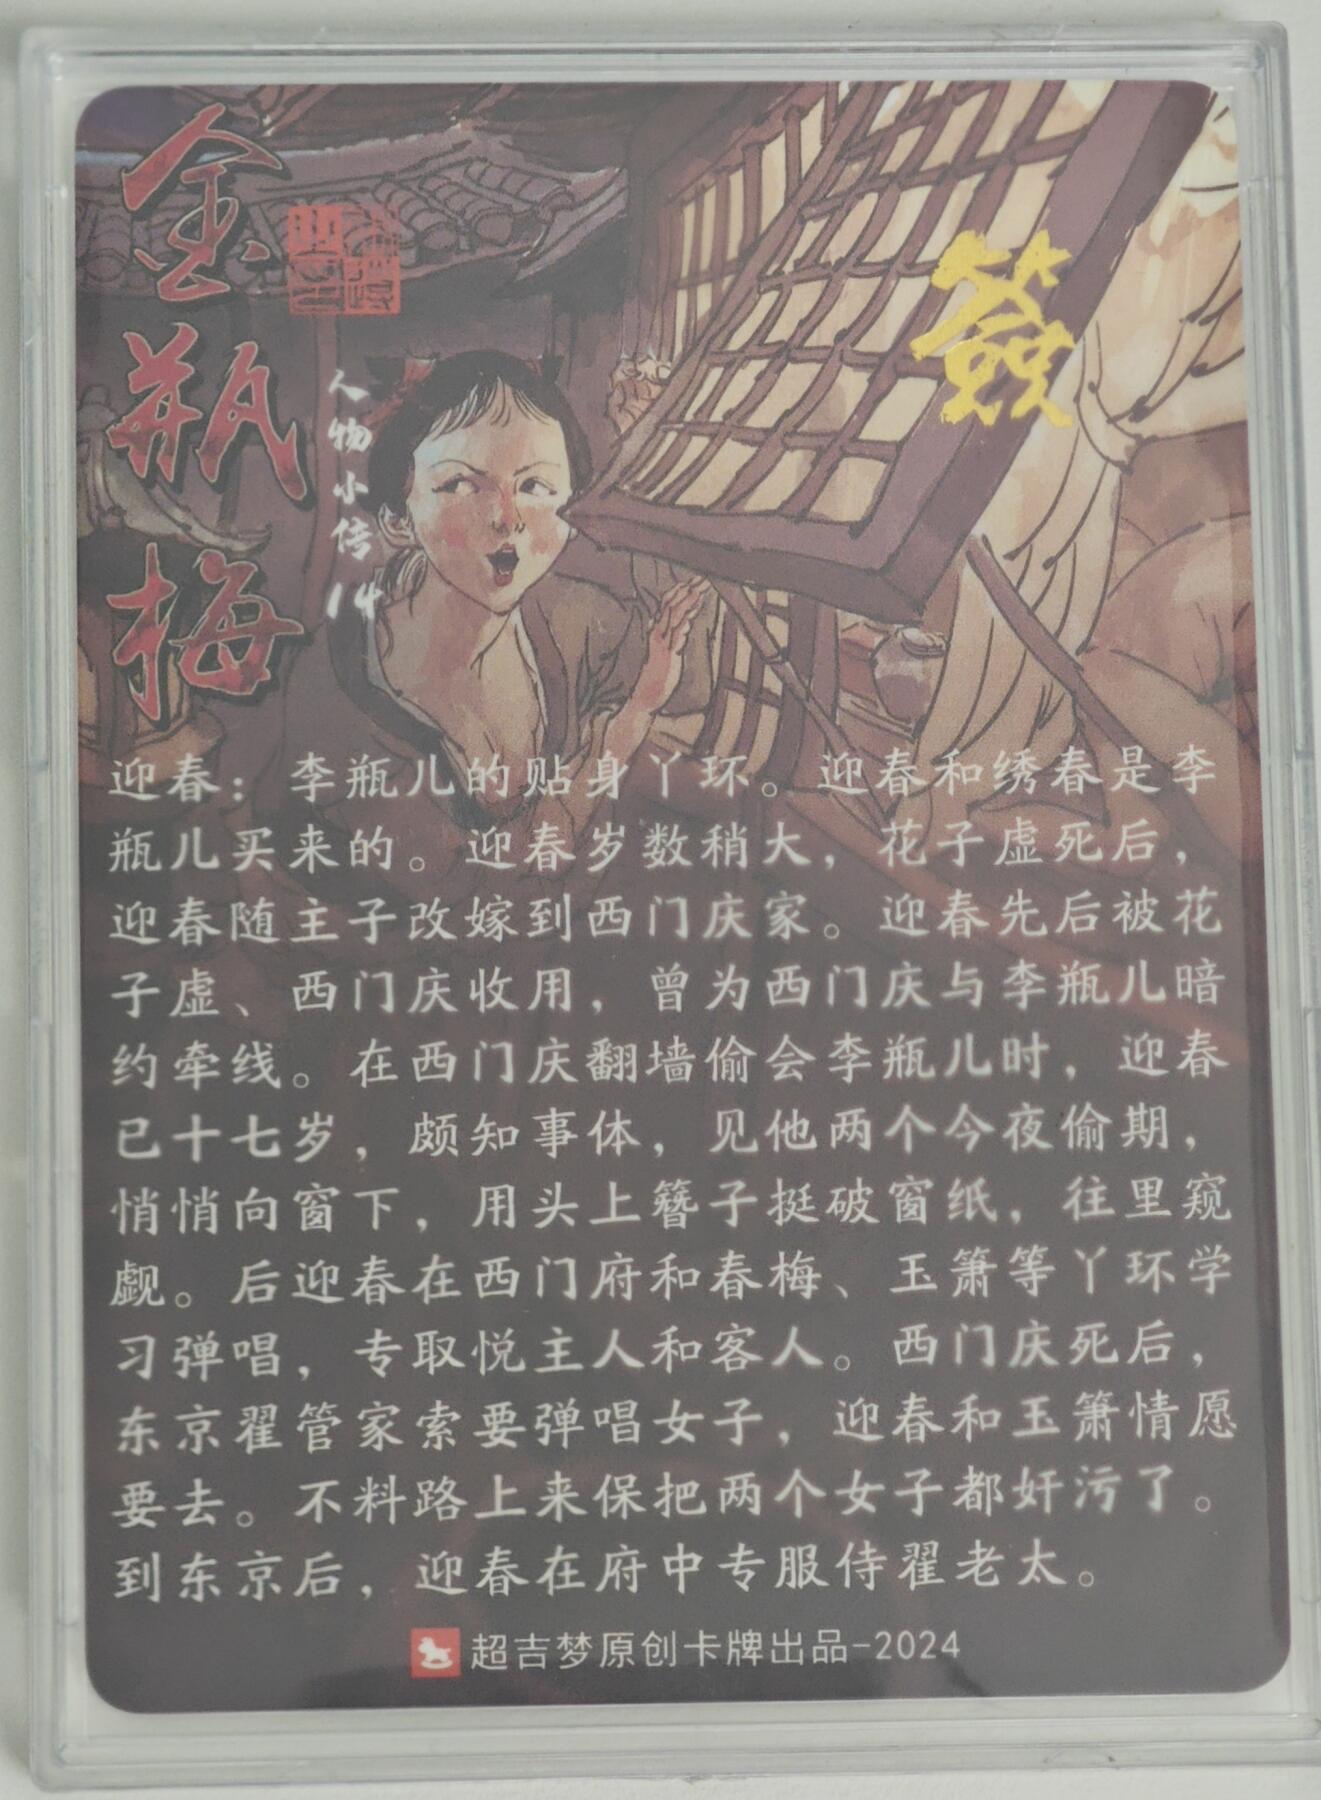 金瓶梅
人物小传14
迎春：李瓶儿的贴身丫环。迎春和绣春是李
瓶儿买来的。迎春岁数稍大，花子虚死后，
迎春随主子改嫁到西门庆家。迎春先后被花
子虚、西门庆收用，曾为西门庆与李瓶儿暗
约牵线。在西门庆翻墙偷会李瓶儿时，迎春
已十七岁，颇知事体，见他两个今夜偷期，
悄悄向窗下，用头上簪子挺破窗纸，往里窥
觑。后迎春在西门府和春梅、玉箫等丫环学
习弹唱，专取悦主人和客人。西门庆死后，
东京翟管家索要弹唱女子，迎春和玉箫情愿
要去。不料路上来保把两个女子都奸污了。
到东京后，迎春在府中专服侍翟老太。
超吉梦原创卡牌出品-2024